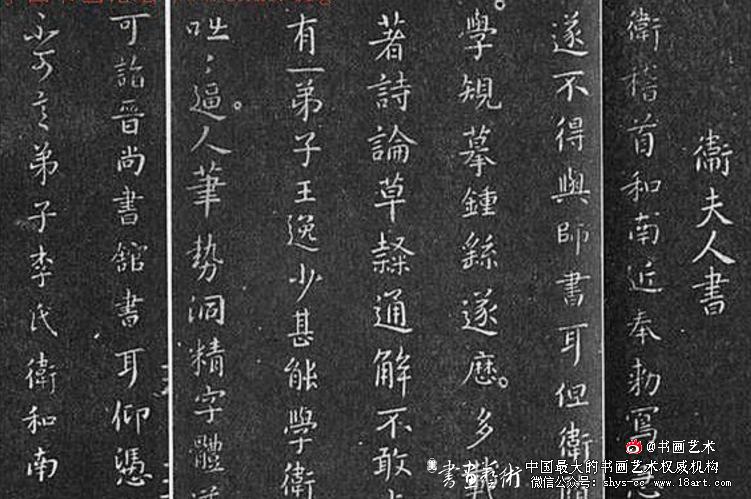 衛夫人書
衛稽首和南近奉勅寫
遂不得與師書耳但衛
學規摹鍾繇遂歷多
著詩論草隸通解不敢
有一弟子王逸少甚能學衛
咄咄逼人筆勢洞精字體
可詣晉尚書館書耳仰憑
弟子李氏衛和南
@书画艺术
書畫藝術 中国最大的书画艺术权威机构
微信公众号：shys-cc www.18art.com